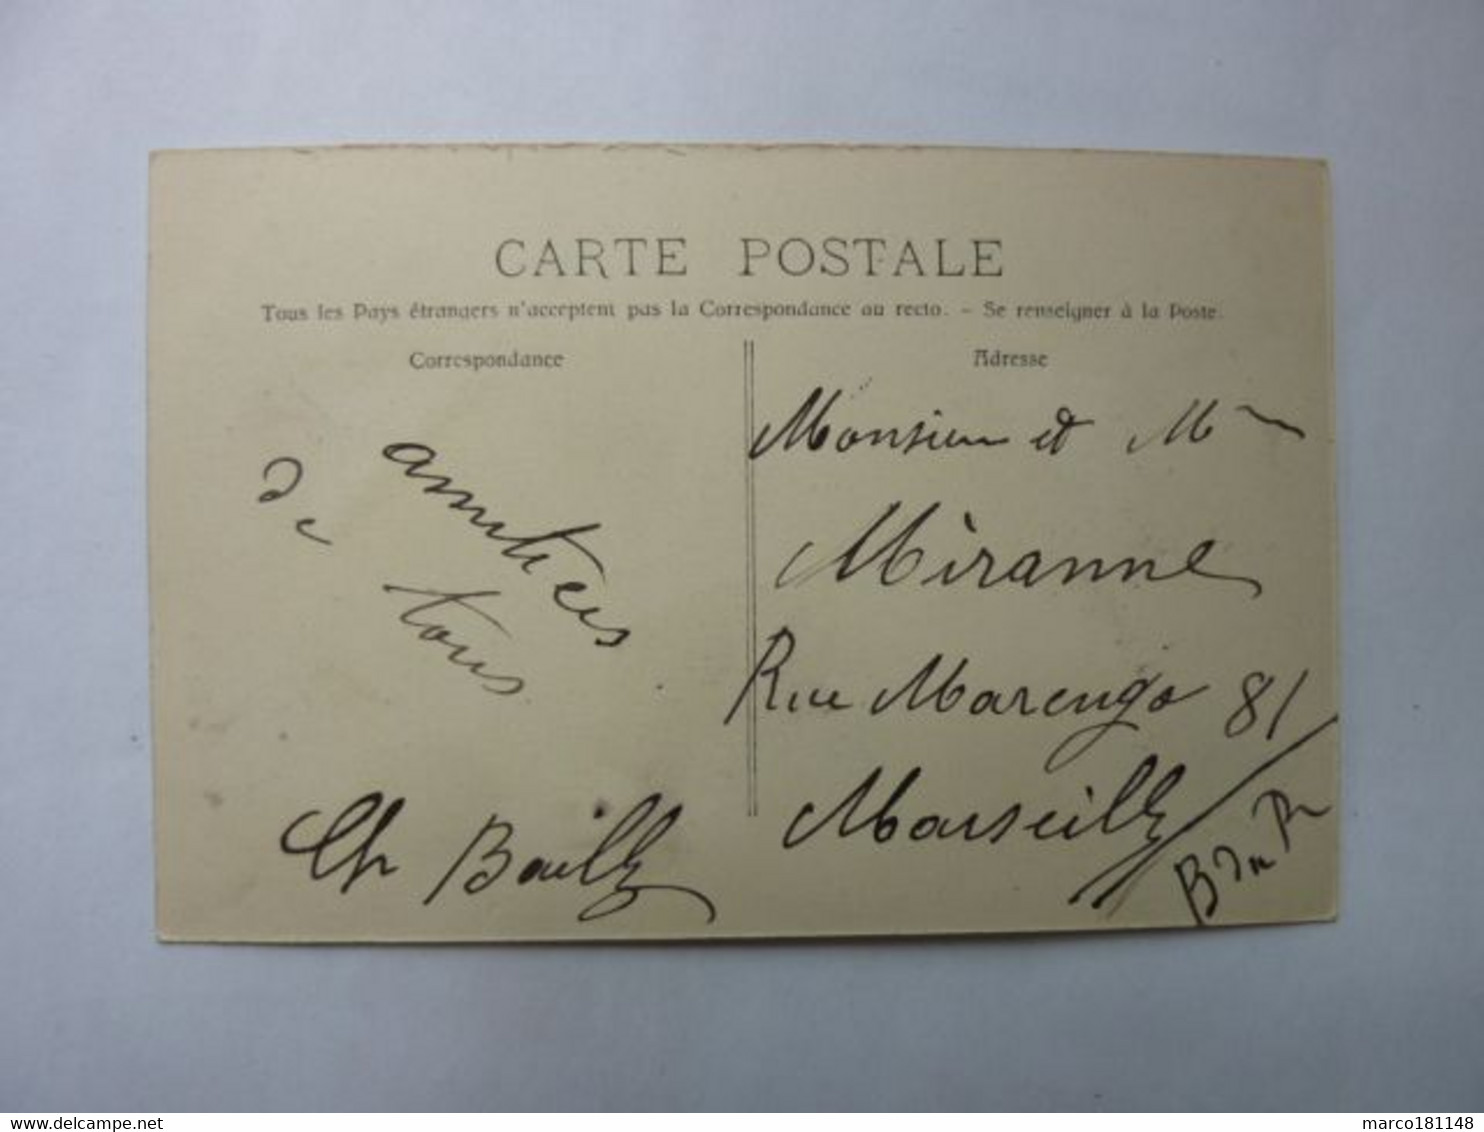 CARTE POSTALE
Tous les Pays étrangers n'acceptent pas la Correspondance au recto. - Se renseigner à la Poste.
Correspondance
amitiés
de
tous
Ch Bailly
Adresse
Monsieur et Mme
Miranne
Rue Marengo 81
Marseille
B du R
delcampe.net
marco181148